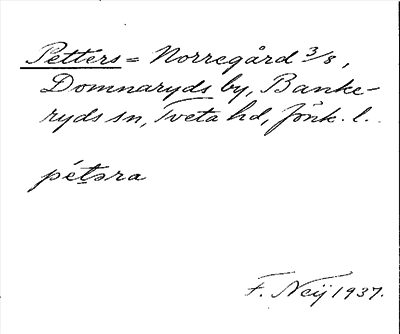 Petters = Norregård 3/8,
Domnaryds by, Banke-
ryds sn, Tveta hd, Jönk. l.
pétsra
F. Neij 1937.